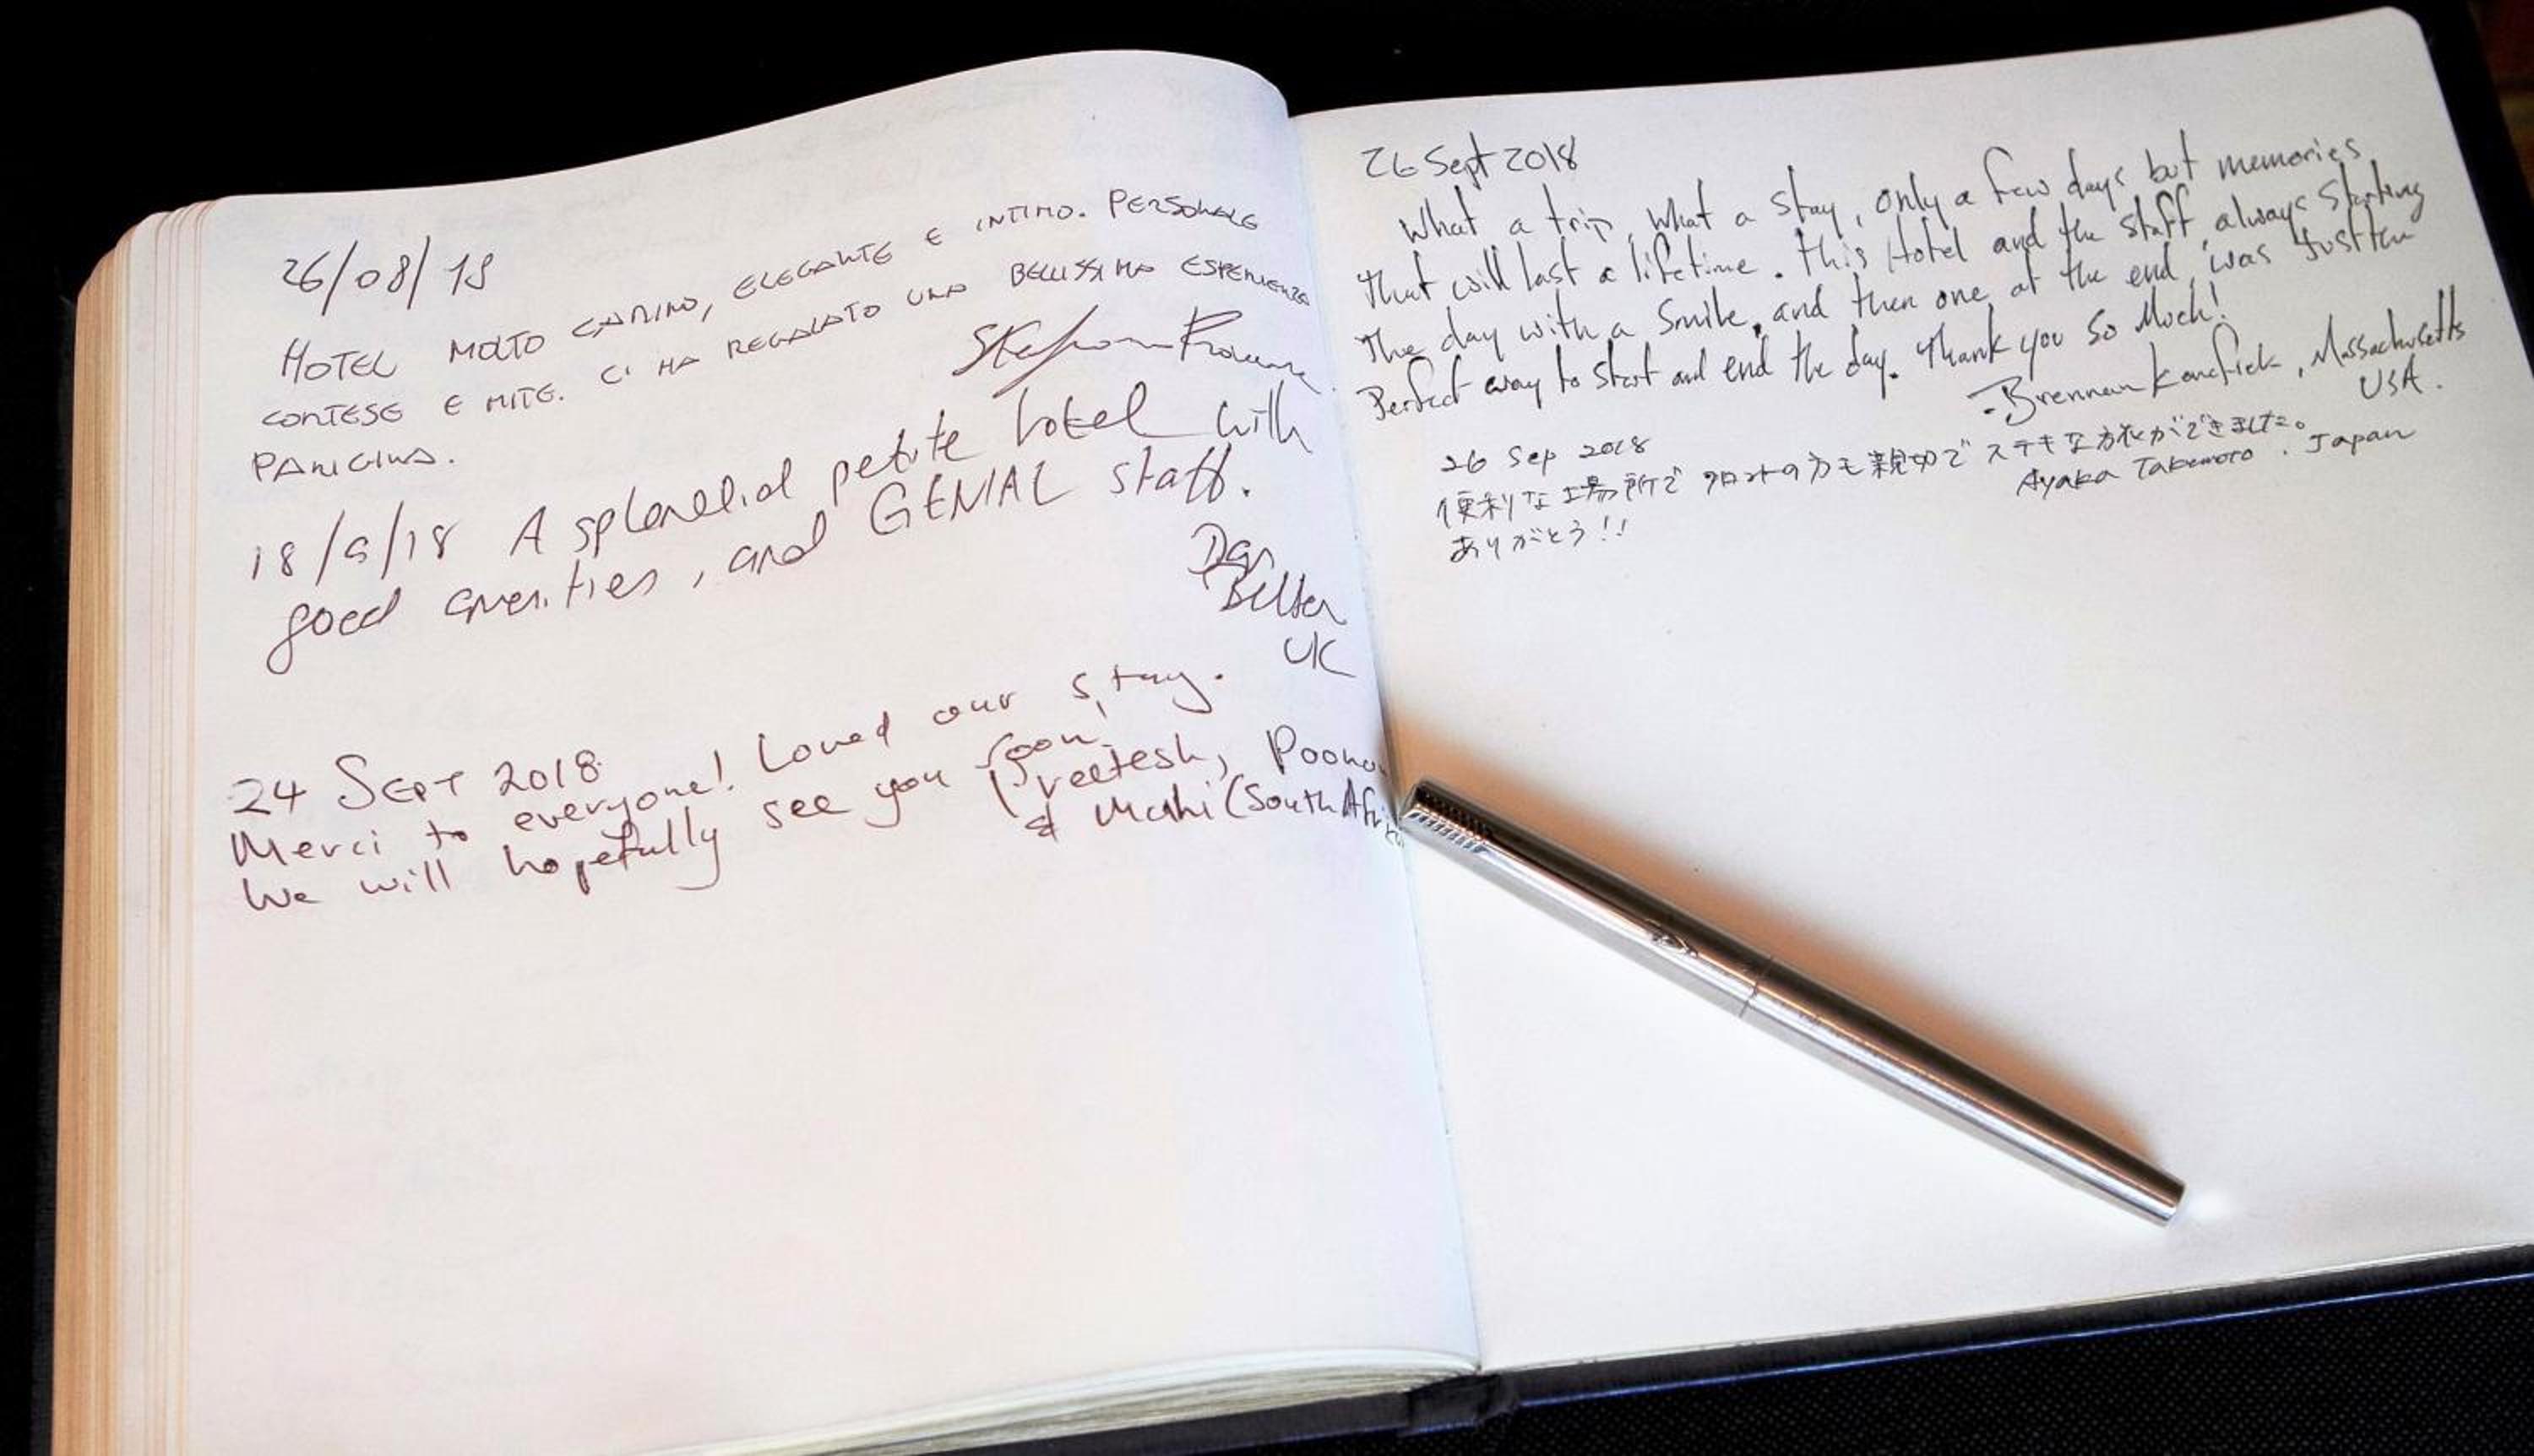 26/08/18
HOTEL MOLTO CARINO, ELEGANTE E INTIMO. PERSONALE
CORTESE E MITE. CI HA REGALATO UNA BELLISSIMA ESPERIENZA
PARIGINA.
18/9/18 A splendid petite hotel with
good amenities, and GENIAL staff.
Dan
UK
24 SEPT 2018
Merci to everyone! Loved our stay.
We will hopefully see you soon.
Preetesh, Poonam
& Mahi (South Afri
26 Sept 2018
What a trip, what a stay, only a few days but memories
that will last a lifetime. This Hotel and the staff, always starting
The day with a Smile, and then one at the end, was Just the
Perfect way to start and end the day. Thank you So Much!
-Brennan, Massachusetts
USA.
26 Sep 2018
便利な場所で フロントの方も親切で ステキな旅ができました。
ありがとう!!
Ayaka Takemoto. Japan